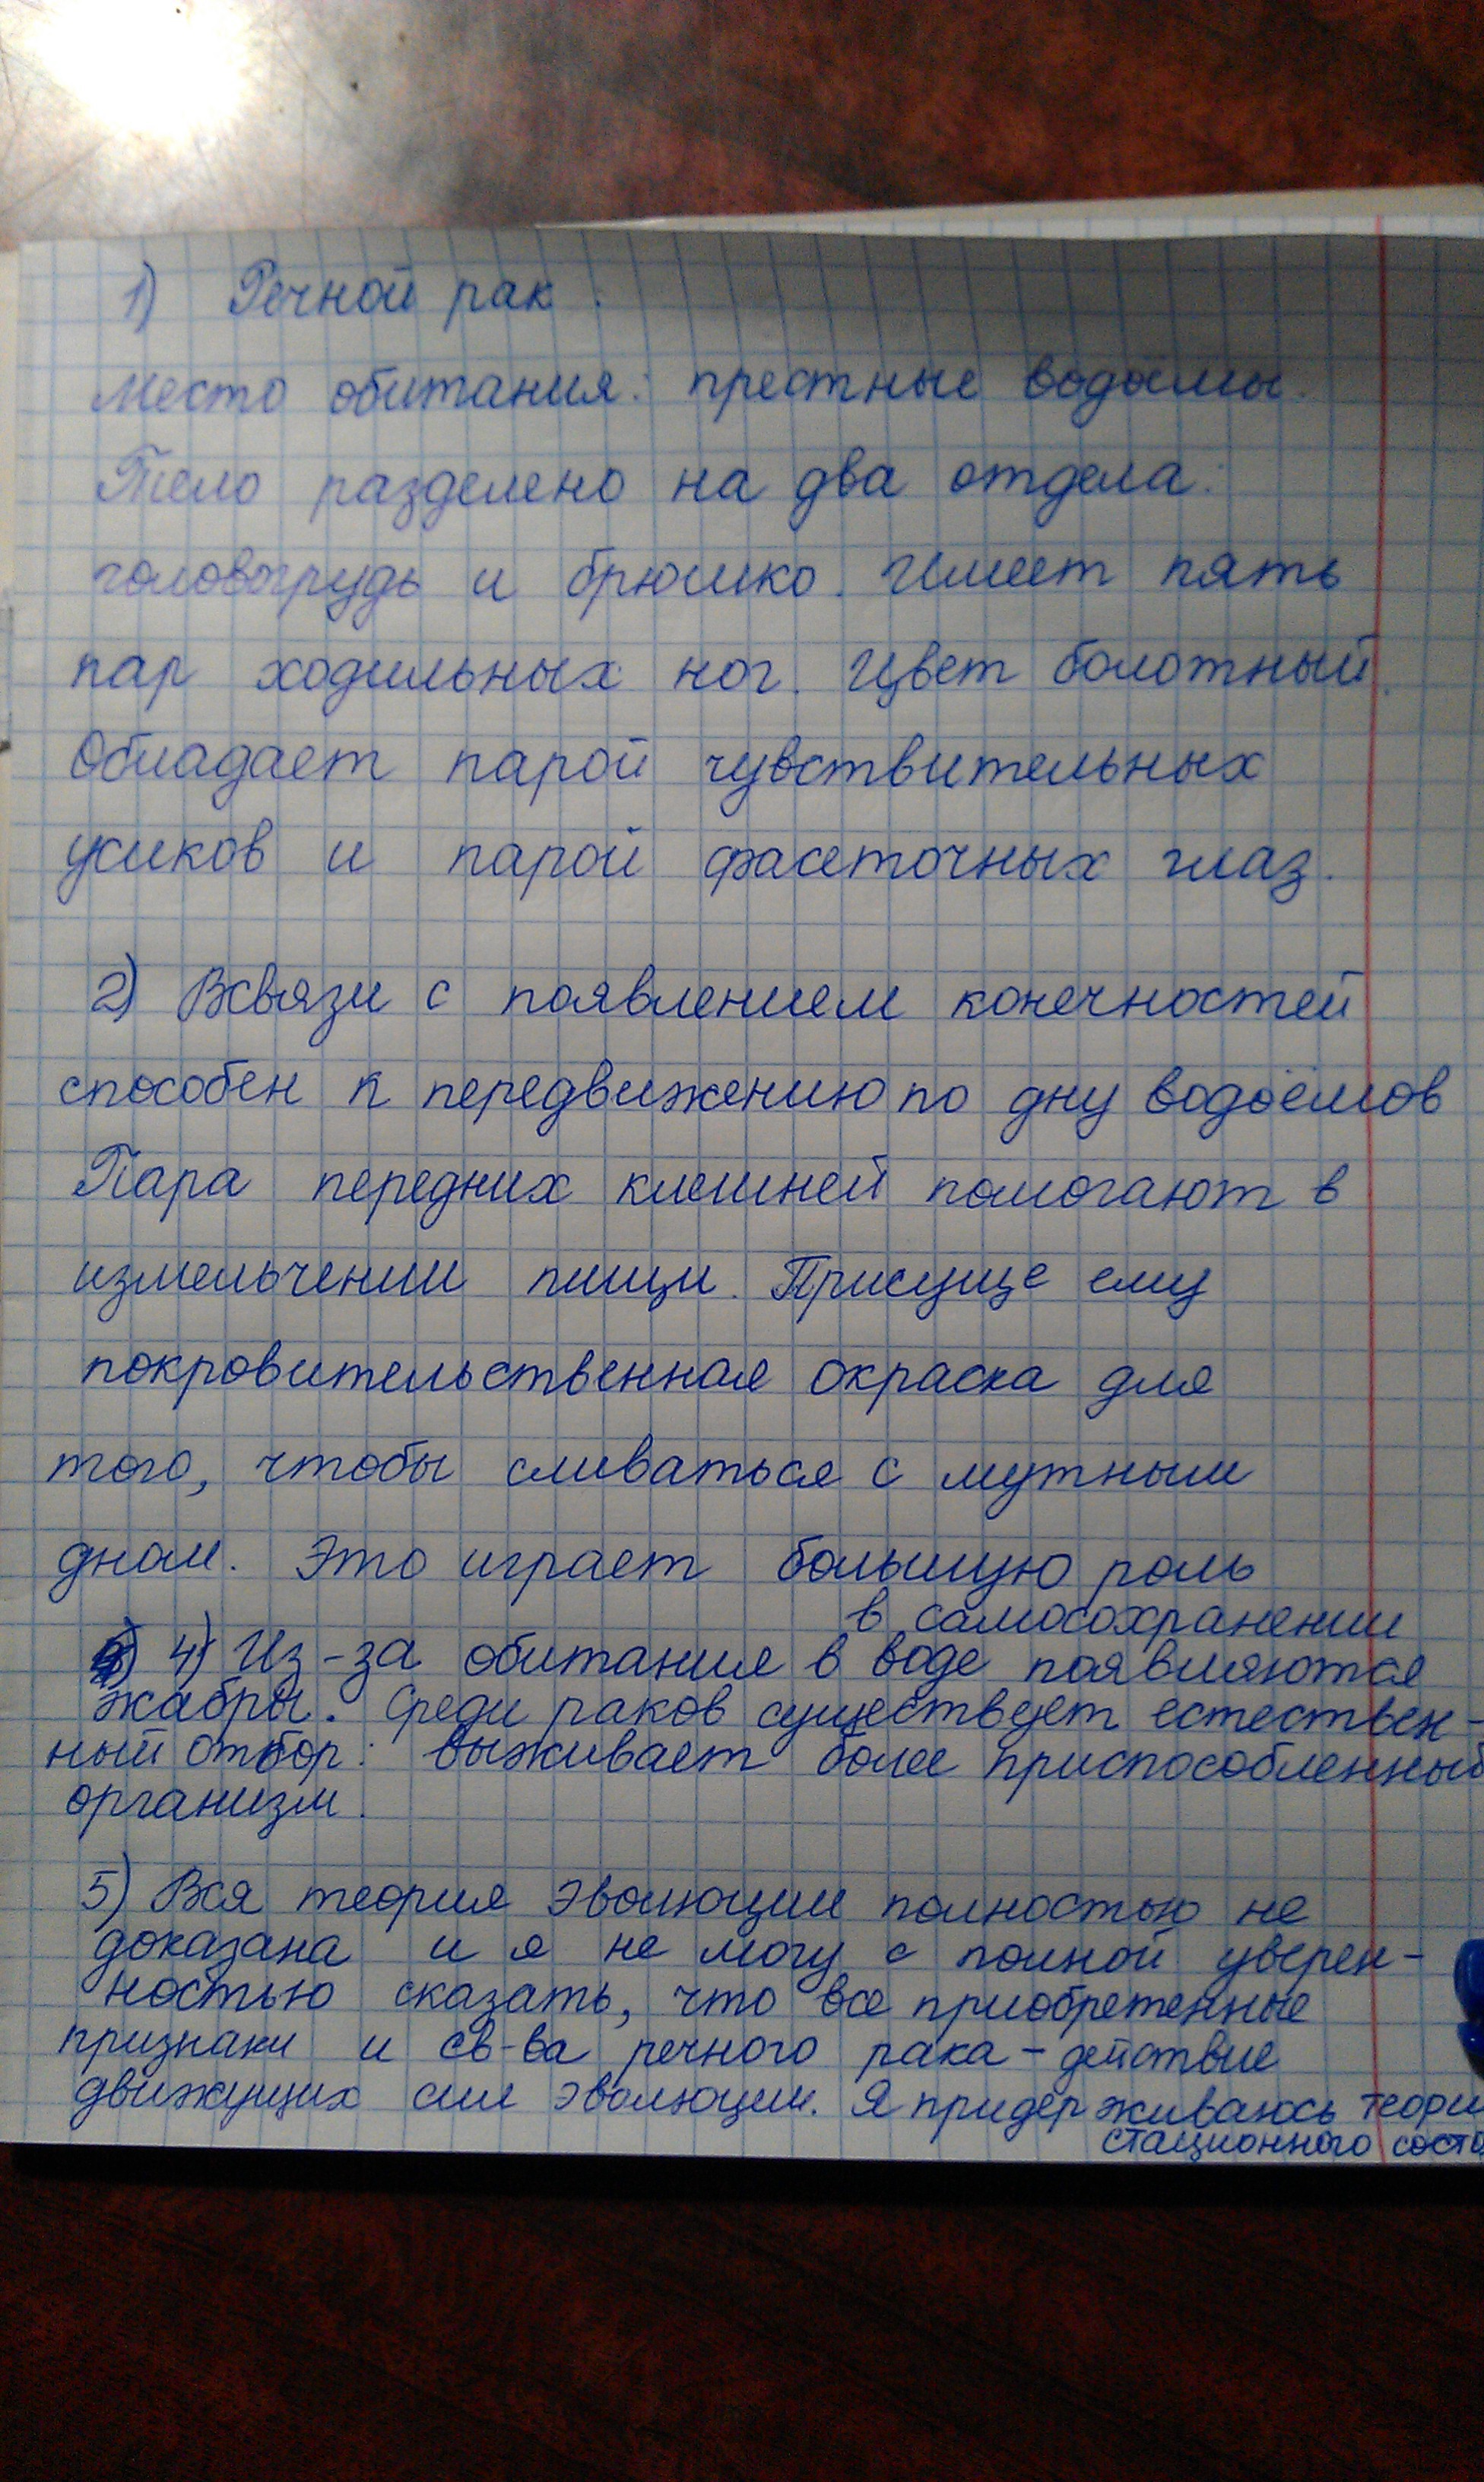 1) Речной рак.
Место обитания: престные водоёмы.
Тело разделено на два отдела:
головогрудь и брюшко. Имеет пять
пар ходильных ног. Цвет болотный.
Обладает парой чувствительных
усиков и парой фасеточных глаз.
2) Всвязи с появлением конечностей
способен к передвижению по дну водоёмов
Пара передних клешней помогают в
измельчении пищи. Присуще ему
покровительственная окраска для
того, чтобы сливаться с мутным
дном. Это играет большую роль
в самосохранении
4) Из-за обитания в воде появляются
жабры. Среди раков существует естествен-
ный отбор: выживает более приспособленный
организм.
5) Вся теория эволюции полностью не
доказана и я не могу с полной уверен-
ностью сказать, что все приобретенные
признаки и св-ва речного рака - действие
движущих сил эволюции. Я придерживаюсь теори
стационного состо